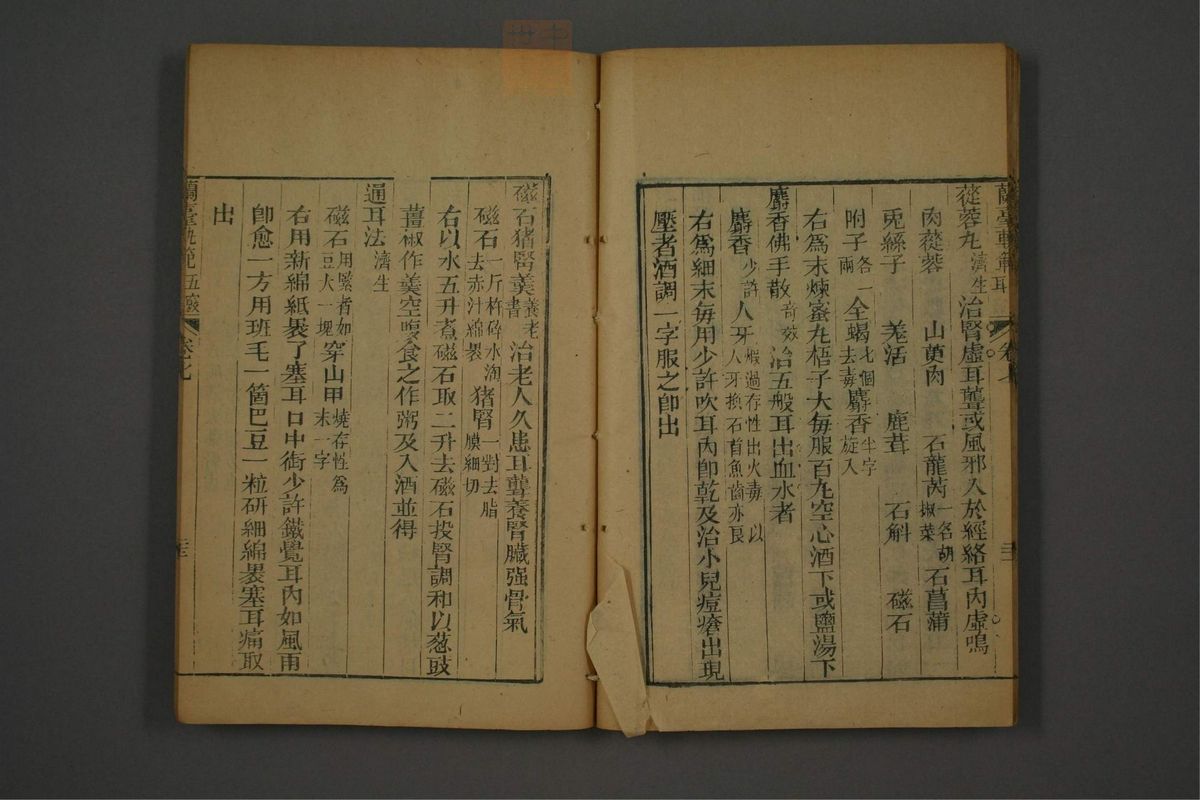 蓯蓉丸濟生治腎虛耳聾或風邪入於經絡耳內虛鳴
肉蓯蓉 山萸肉 石龍芮一名胡椒菜石菖蒲
兎絲子 羌活 鹿茸 石斛 磁石
附子各一兩全蝎七個去毒麝香半字旋入
右爲末煉蜜丸梧子大每服百丸空心酒下或鹽湯下
麝香佛手散奇效治五般耳出血水者
麝香少許人牙煅過存性出火毒以人牙換石首魚齒亦良
右爲細末每用少許吹耳內卽乾及治小兒痘瘡出現
壓者酒調一字服之卽出
蘭臺軌範 耳 卷七
磁石猪腎羹養老書治老人久患耳聾養腎臟强骨氣
磁石一斤杵碎水淘去赤汁綿裹猪腎一對去脂膜細切
右以水五升煮磁石取二升去磁石投腎調和以葱豉
薑椒作羹空腹食之作粥及入酒並得
通耳法濟生
磁石用緊者如豆大一塊穿山甲燒存性爲末一字
右用新綿紙裹了塞耳口中銜少許鐵覺耳內如風雨
卽愈一方用班毛一箇巴豆一粒研細綿裹塞耳痛取
出
蘭臺軌範 卷七